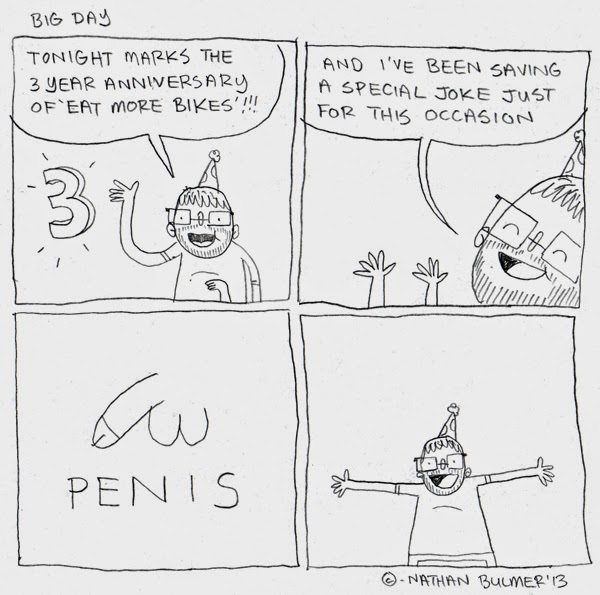 BIG DAY
TONIGHT MARKS THE
3 YEAR ANNIVERSARY
OF 'EAT MORE BIKES'!!!
3
AND I'VE BEEN SAVING
A SPECIAL JOKE JUST
FOR THIS OCCASION
PENIS
©-NATHAN BULMER '13